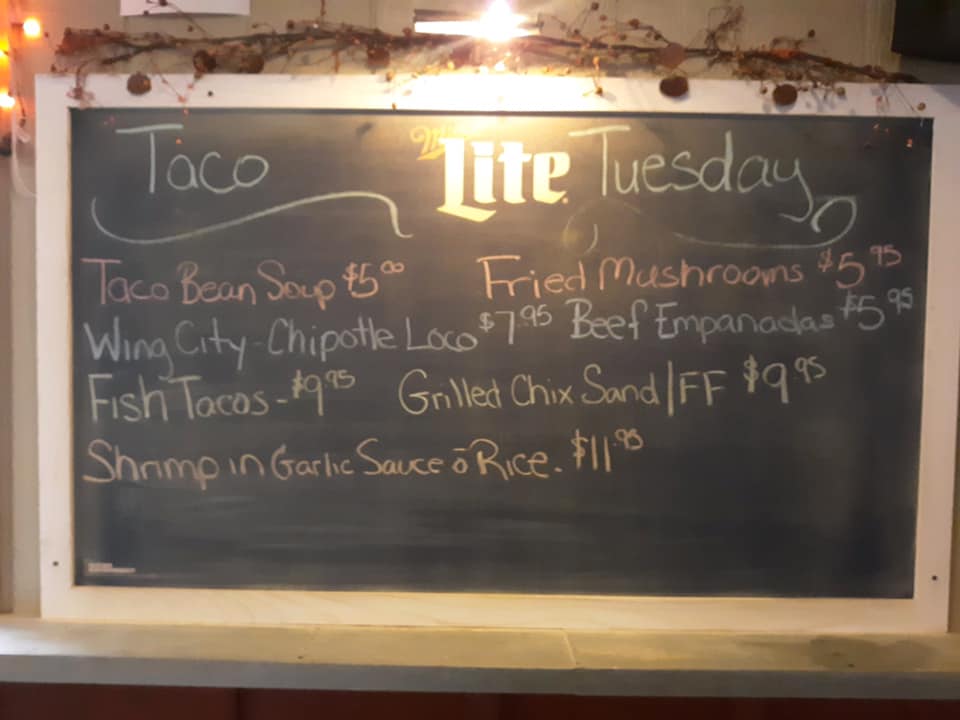 Taco Miller Lite Tuesday
Taco Bean Soup $5.00 Fried Mushrooms $5.95
Wing City-Chipotle Loco $7.95 Beef Empanadas $5.95
Fish Tacos-$9.95 Grilled Chix Sand/FF $9.95
Shrimp in Garlic Sauce c̄ Rice. $11.95